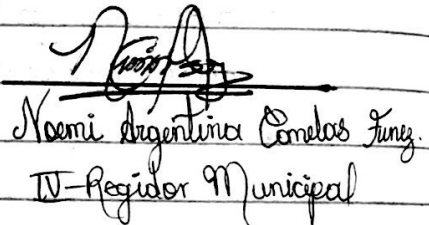 Noemi Argentina Comelas Funez.
IV-Regidor Municipal